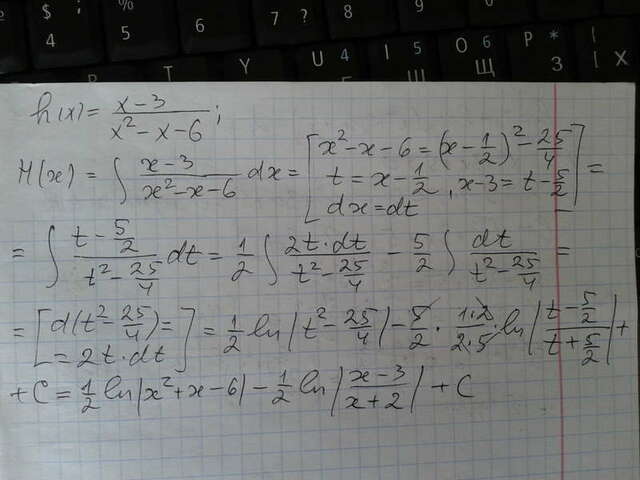 $ ; 4 % 5 6 ? 7 8 9
T Y U 4 I 5 Ш O 6 Щ P * З X
h(x) = \frac{x-3}{x^2-x-6};
H(x) = \int \frac{x-3}{x^2-x-6} dx = [x^2-x-6 = (x-\frac{1}{2})^2 - \frac{25}{4}
t = x-\frac{1}{2}, x-3 = t-\frac{5}{2}
dx = dt] =
= \int \frac{t-\frac{5}{2}}{t^2-\frac{25}{4}} dt = \frac{1}{2} \int \frac{2t \cdot dt}{t^2-\frac{25}{4}} - \frac{5}{2} \int \frac{dt}{t^2-\frac{25}{4}} =
= [d(t^2-\frac{25}{4}) =
= 2t \cdot dt] = \frac{1}{2} ln|t^2-\frac{25}{4}| - \frac{5}{2} \cdot \frac{1 \cdot 2}{2 \cdot 5} \cdot ln|\frac{t-\frac{5}{2}}{t+\frac{5}{2}}| +
+ C = \frac{1}{2} ln|x^2+x-6| - \frac{1}{2} ln|\frac{x-3}{x+2}| + C